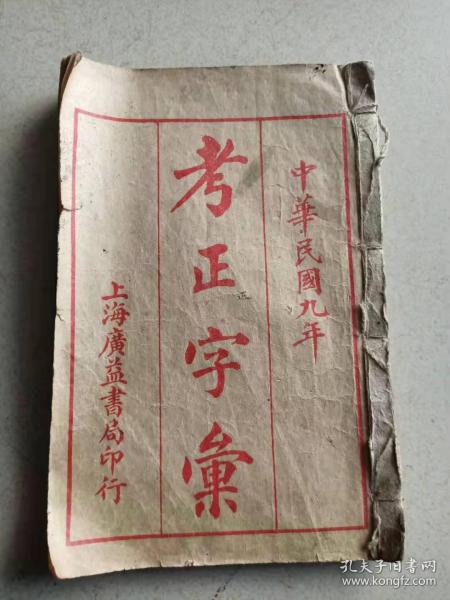 中華民國九年
考正字彙
上海廣益書局印行
孔夫子旧书网
www.kongfz.com